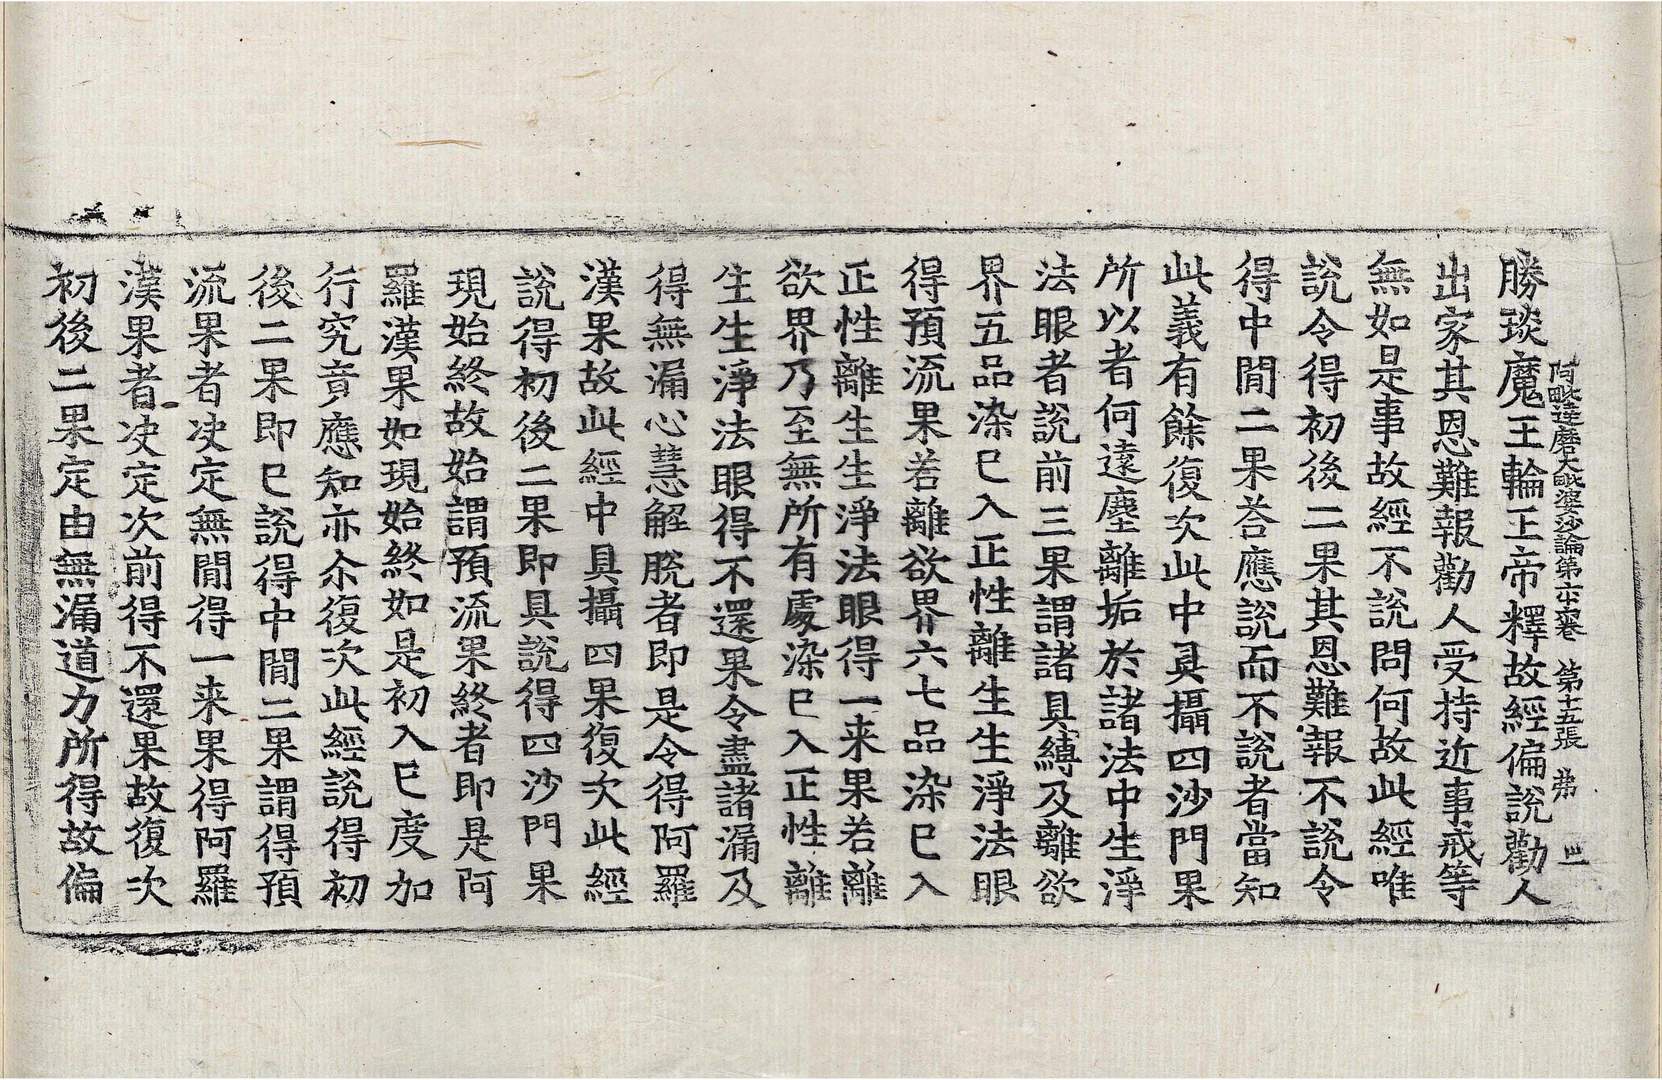 阿毗達磨大毗婆沙論第六十六卷　第十五張　弗
勝琰魔王輪王帝釋故經偏說勸人
出家其恩難報勸人受持近事戒等
無如是事故經不說問何故此經唯
說令得初後二果其恩難報不說令
得中閒二果荅應說而不說者當知
此義有餘復次此中具攝四沙門果
所以者何遠塵離垢於諸法中生淨
法眼者說前三果謂諸具縛及離欲
界五品染已入正性離生生淨法眼
得預流果若離欲界六七品染已入
正性離生生淨法眼得一来果若離
欲界乃至無所有處染已入正性離
生生淨法眼得不還果令盡諸漏及
得無漏心慧解脫者即是令得阿羅
漢果故此經中具攝四果復次此經
說得初後二果即具說得四沙門果
現始終故始謂預流果終者即是阿
羅漢果如現始終如是初入已度加
行究竟應知亦尒復次此經說得初
後二果即已說得中閒二果謂得預
流果者决定無閒得一来果得阿羅
漢果者决定次前得不還果故復次
初後二果定由無漏道力所得故偏